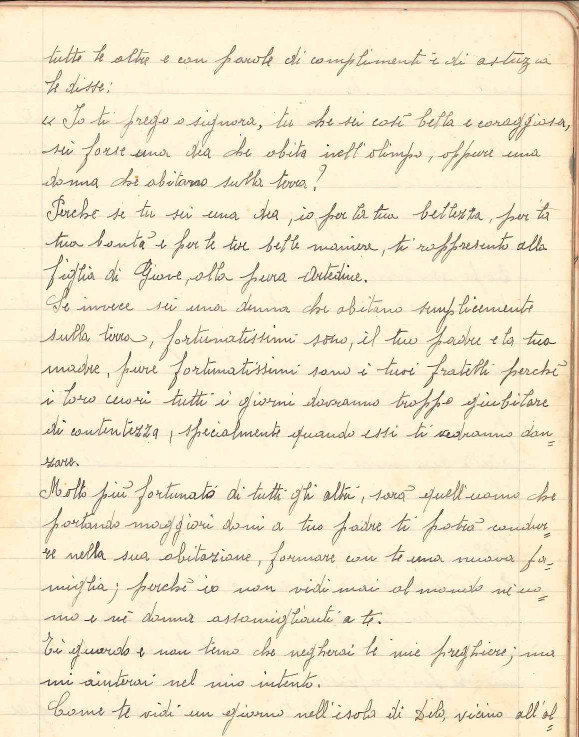 tutte le altre e con parole di complimenti e di astuzia
le disse:
"Io ti prego o signora, tu che sei così bella e coraggiosa,
sei forse una dea che abita nell'olimpo, oppure una
donna che abitano sulla terra?
Perchè se tu sei una dea, io per la tua bellezza, per la
tua bontà e per le tue belle maniere, ti rappresento alla
figlia di Giove, alla pura Artedine.
Se invece sei una donna che abitano semplicemente
sulla terra, fortunatissimi sono, il tuo padre e la tua
madre, pure fortunatissimi sono i tuoi fratelli perchè
i loro cuori tutti i giorni dovranno troppo giubilare
di contentezza, specialmente quando essi ti vedranno dan=
zare.
Molto più fortunato di tutti gli altri, sarà quell'uomo che
portando maggiori doni a tuo padre ti potrà condur=
re nella sua abitazione, formare con te una nuova fa=
miglia; perchè io non vidi mai al mondo nè uo=
mo e nè donna assomiglianti a te.
Ti guardo e non temo che negherai le mie preghiere; ma
mi aiuterai nel mio intento.
Come te vidi un giorno nell'isola di Delo, vicino all'al=